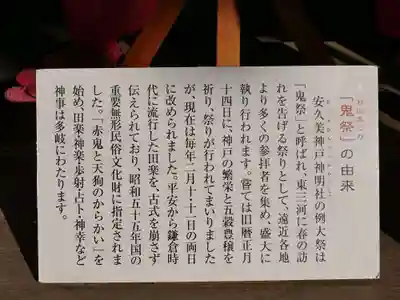 「鬼祭」の由来
安久美神戸神明社の例大祭は
「鬼祭」と呼ばれ、東三河に春の訪
れを告げる祭りとして、遠近各地
より多くの参拝者を集め、盛大に
執り行われます。嘗ては旧暦正月
十四日に、神戸の繁栄と五穀豊穣を
祈り、祭りが行われてまいりました
が、現在は毎年二月十・十一日の両日
に改められました。平安から鎌倉時
代に流行した田楽を、古式を崩さず
伝えられており、昭和五十五年国の
重要無形民俗文化財に指定されま
した。「赤鬼と天狗のからかい」を
始め、田楽・神楽・歩射・占卜・神幸など
神事は多岐にわたります。